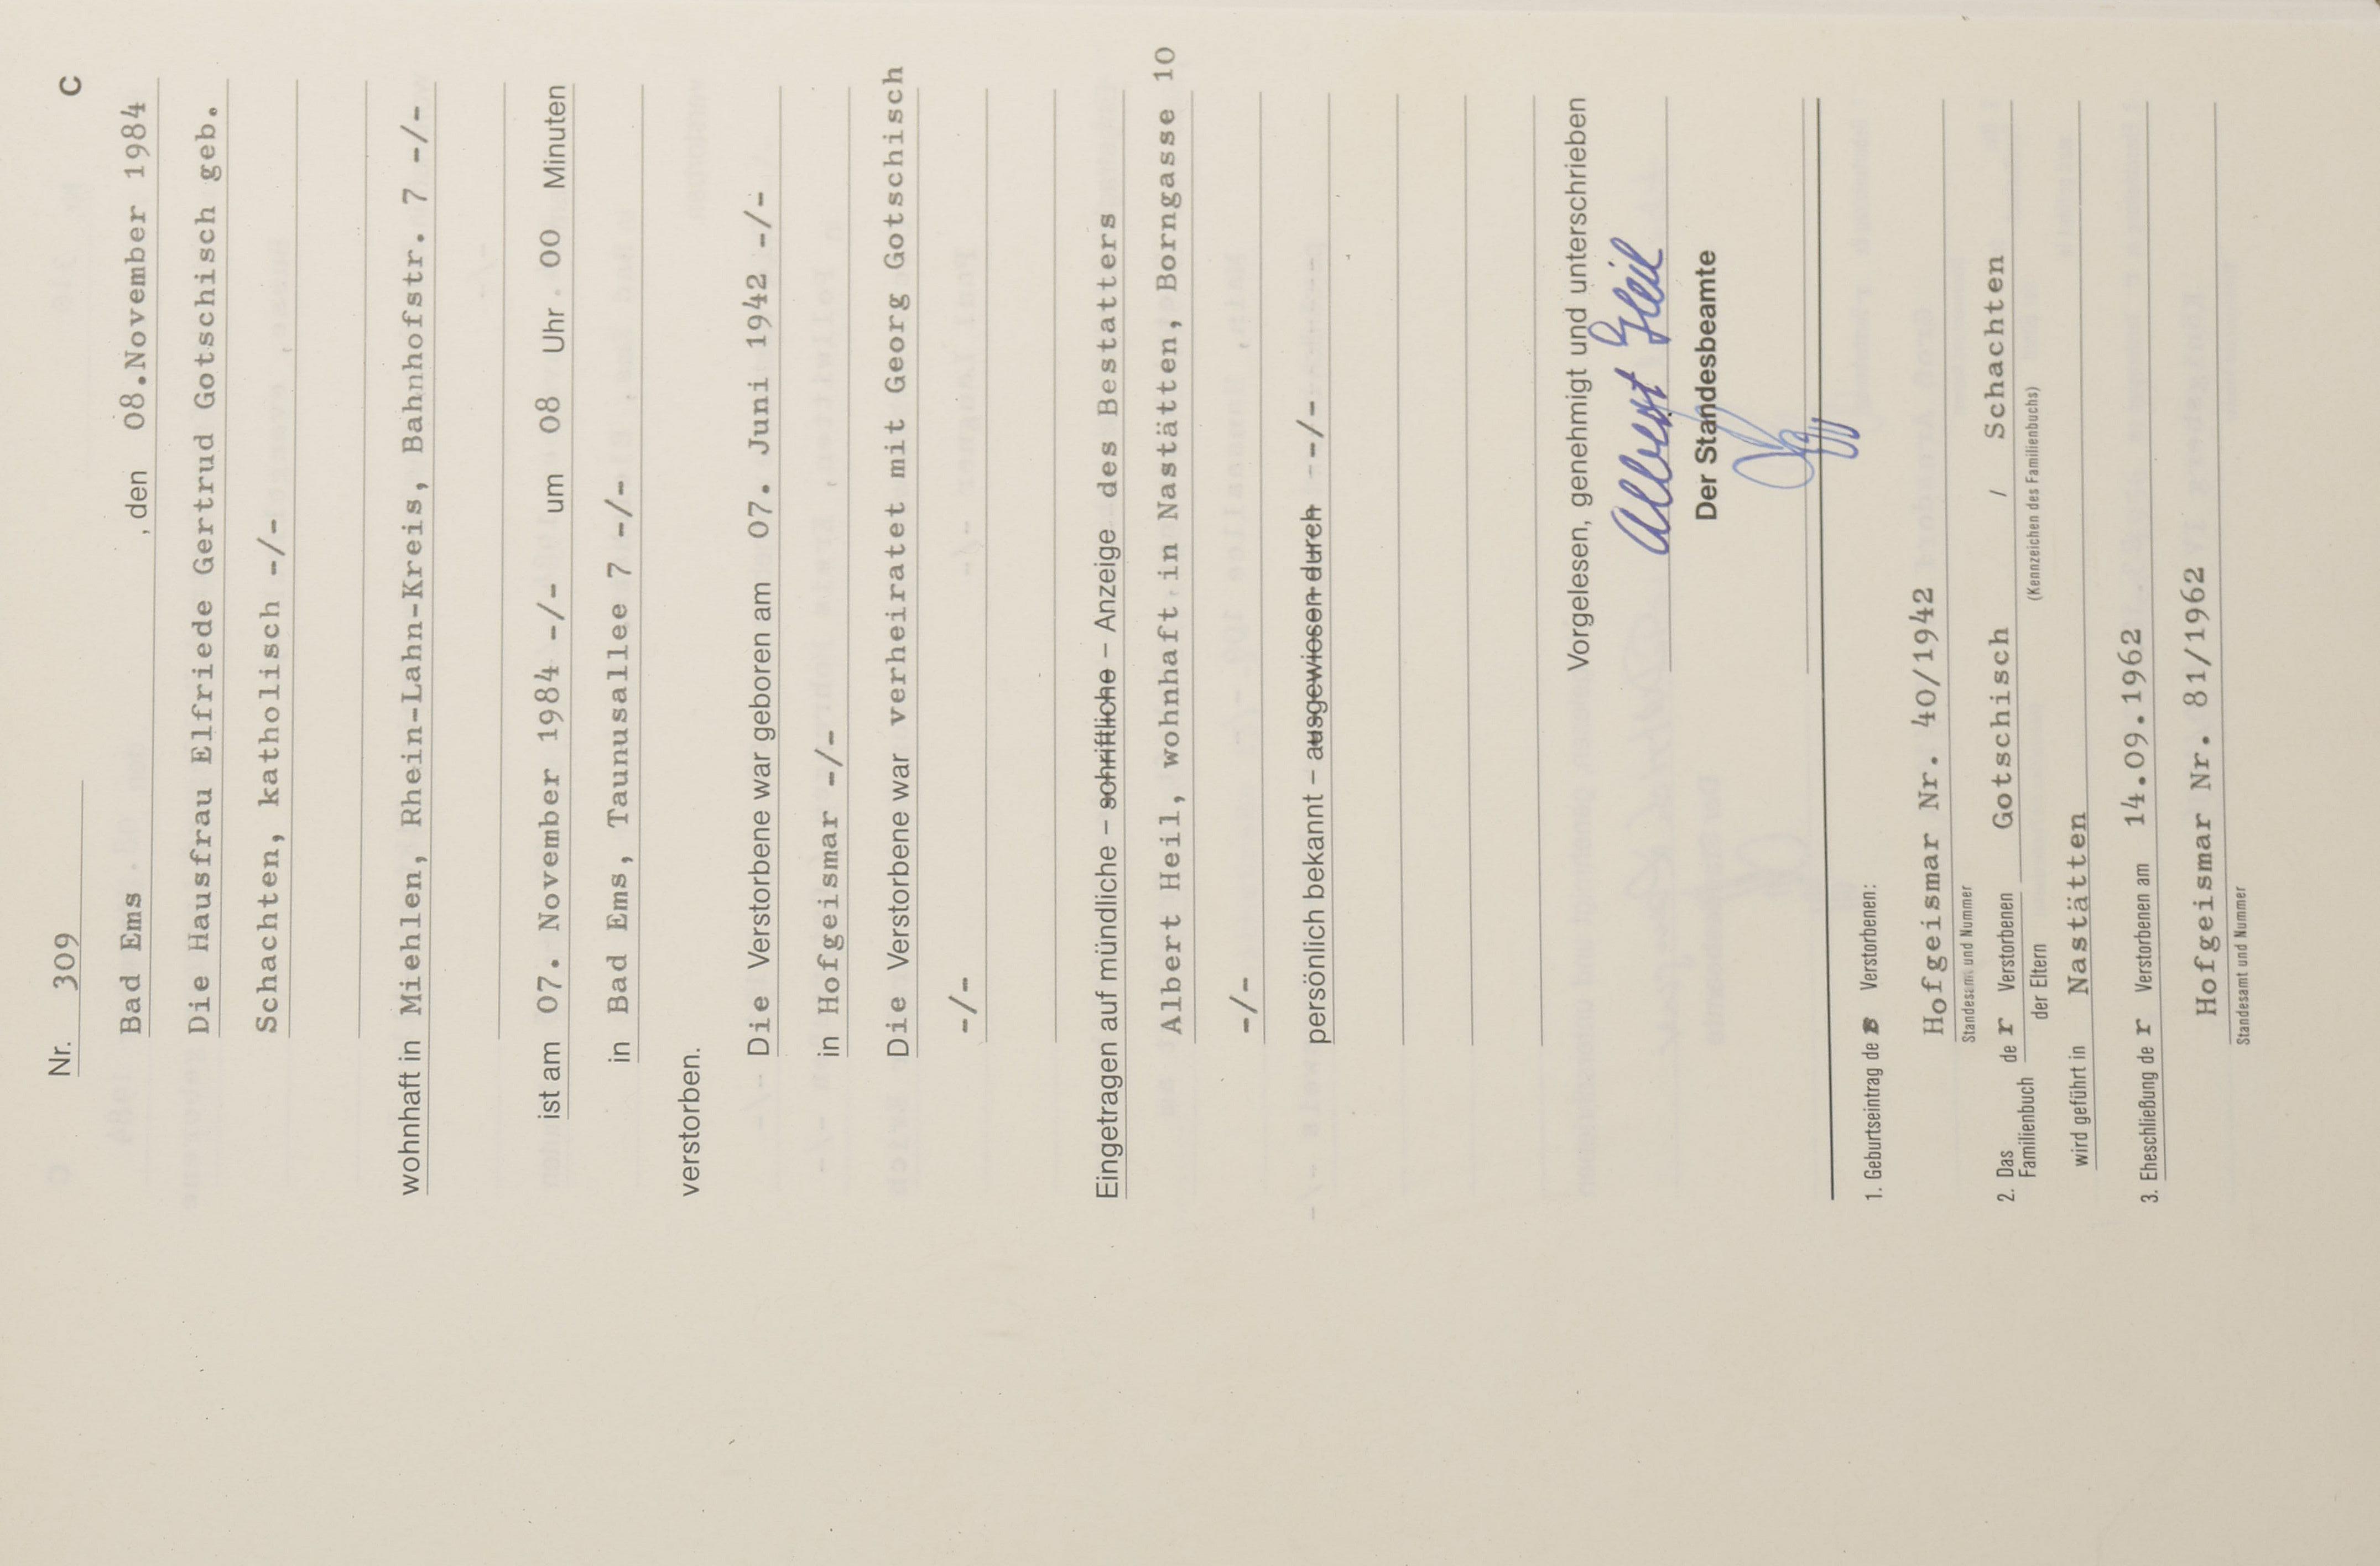 Nr. 309 C
Bad Ems , den 08.November 1984
Die Hausfrau Elfriede Gertrud Gotschisch geb.
Schachten, katholisch -/-
wohnhaft in Miehlen, Rhein-Lahn-Kreis, Bahnhofstr. 7 -/-
ist am 07. November 1984 -/- um 08 Uhr 00 Minuten
in Bad Ems, Taunusallee 7 -/-
verstorben.
Die Verstorbene war geboren am 07. Juni 1942 -/-
in Hofgeismar -/-
Die Verstorbene war verheiratet mit Georg Gotschisch
-/-
Eingetragen auf mündliche – schriftliche – Anzeige des Bestatters
Albert Heil, wohnhaft in Nastätten, Borngasse 10
-/-
persönlich bekannt – ausgewiesen durch -/-
Vorgelesen, genehmigt und unterschrieben
Albert Heil
Der Standesbeamte
1. Geburtseintrag de Verstorbenen:
Hofgeismar Nr. 40/1942
Standesamt und Nummer
2. Das Familienbuch de r Verstorbenen Gotschisch / Schachten
der Eltern (Kennzeichen des Familienbuchs)
wird geführt in Nastätten
3. Eheschließung de r Verstorbenen am 14.09.1962
Hofgeismar Nr. 81/1962
Standesamt und Nummer